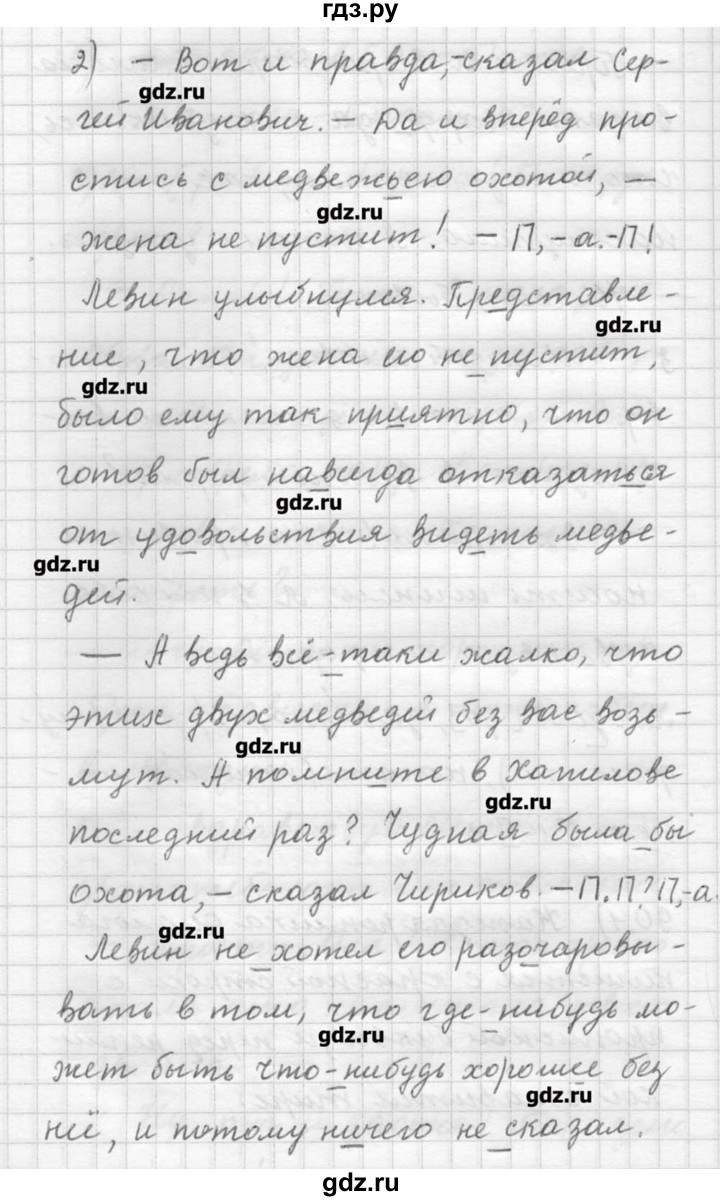 гдз.ру
2) – Вот и правда, – сказал Сер-
gdz.ru
гей Иванович. – Да и вперёд про-
стись с медвежьею охотой, –
gdz.ru
жена не пустит! – П, – а. – П!
Левин улыбнулся. Представле-
gdz.ru
ние, что жена его не пустит,
gdz.ru
было ему так приятно, что он
готов был навсегда отказаться
gdz.ru
от удовольствия видеть медве-
gdz.ru
дей.
– А ведь всё-таки жалко, что
этих двух медведей без вас возь-
gdz.ru
мут. А помните в Хапилове
gdz.ru
последний раз? Чудная была бы
охота, – сказал Чириков. – П. П? П, – а.
gdz.ru
Левин не хотел его разочаровы-
вать в том, что где-нибудь мо-
gdz.ru
жет быть что-нибудь хорошее без
gdz.ru
неё, и потому ничего не сказал.
gdz.ru